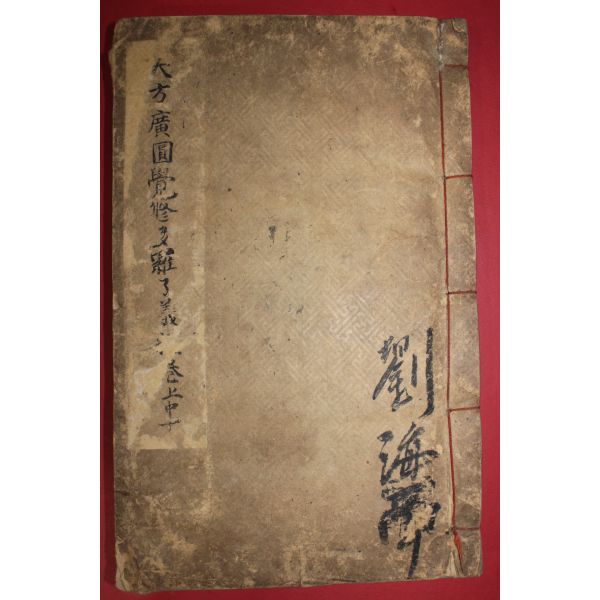 大方廣圓覺修多羅了義
卷上中下
劉海